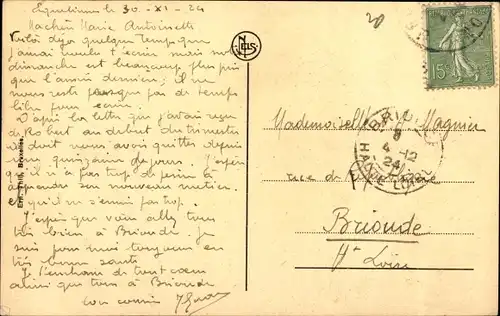 le 30-XI-24
Ma chère Marie Antoinette
Voilà déjà quelque temps que
j'aurais voulu t'écrire mais notre
dimanche est beaucoup plus pris
que l'année dernière; il ne
nous reste presque pas de temps
libre pour écrire.
D'après la lettre que j'avais reçu
de Robert au début du trimestre
il doit nous
quinzaine de jours. J'espère
qu'il n'a pas trop de peine à
apprendre son nouveau métier
et qu'il ne s'ennuie pas trop.
J'espère que vous allez tous
très bien à Brioude. Je
suis pour moi toujours en
très bonne santé.
Je t'embrasse de tout cœur
ainsi que tous à Brioude
ton cousin
Ern. Thill, Bruxelles
NELS
20
15c
BRIOUDE
4-12
24
HAUTE LOIRE
Mademoiselle M. Magnier
rue de
Brioude
Hte Loire